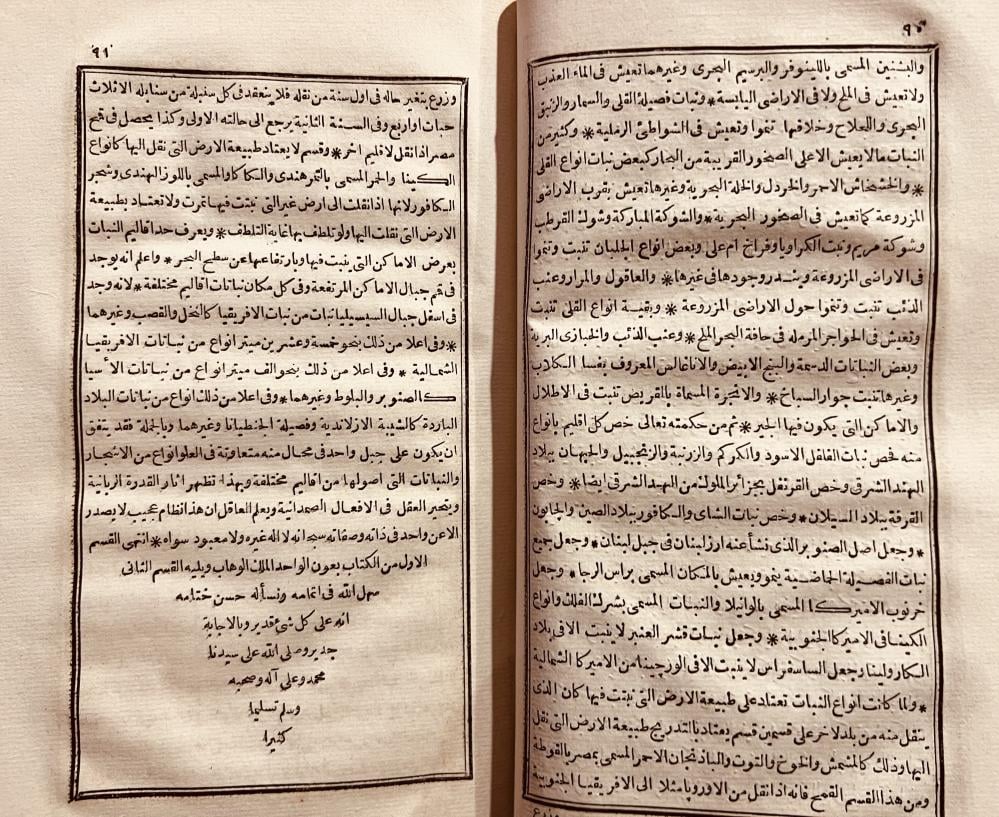 ٩٠
والبشنين المسمى باللينوفر والبرسيم البحرى وغيرهما تعيش فى الماء العذب
ولا تعيش فى الملح ولا فى الاراضى اليابسة * ونبات فصيلة القلى والسمار والزنبق
البحرى واللحلاح وخلافها تنموا وتعيش فى الشواطئ الرملية * وكثير من
النبات مالا يعيش الا على الصخور القريبة من البحار كبعض نبات انواع القلى
* والخشخاش الاحمر والخردل والخلة البحرية وغيرها تعيش بقرب الاراضى
المزروعة كما تعيش فى الصخور البحرية * والشوكة المباركة وشوك القرطب
وشوكة مريم ونبت الكراويا وفراخ ام على وبعض انواع الجلبان تنبت وتنموا
فى الاراضى المزروعة وندر وجودها فى غيرها * والعاقول والمرار وعنب
الذئب تنبت وتنموا حول الاراضى المزروعة * وبقية انواع القلى تنبت
وتعيش فى الحواجر المرملة فى حافة البحر الملح * وعنب الذئب والخبازى البرية
وبعض النباتات الدسمة والبنج الابيض والاناغالس المعروف بفسا الكلاب
وغيرها تنبت جوار السباخ * والانجرة المسماة بالقريص تنبت فى الاطلال
والاماكن التى يكون فيها الجير * ثم من حكمته تعالى خص كل اقليم بانواع
منه فخص نبات الفلفل الاسود والكركم والزرنبة والزنجبيل والحبهان ببلاد
الهند الشرقى وخص القرنفل بجزائر الملوك من الهند الشرقى ايضا * وخص
القرفة ببلاد السيلان * وخص نبات الشاى والكافور ببلاد الصين والجابون
* وجعل اصل الصنوبر الذى نشأ عنه ارز لبنان فى جبل لبنان * وجعل جميع
نبات الفصيلة الحاضية ينمو ويعيش بالمكان المسمى براس الرجا * وجعل
خرنوب الاميركا المسمى بالوانيلا والنبات المسمى بشرك الفلك وانواع
الكينا فى الاميركا الجنوبية * وجعل نبات قشر العنبر لا ينبت الا فى بلاد
الكارولينا وجعل الساسفراس لا ينبت الا فى الورجينا من الاميركا الشمالية
* ولما كانت انواع النبات تعتاد على طبيعة الارض التى نبتت فيها كان الذى
ينتقل منه من بلد لاخر على قسمين قسم يعتاد بالتدريج طبيعة الارض التى نقل
اليها وذلك كالمشمش والخوخ والتوت والباذنجان الاحمر المسمى بمصر بالقوطة
ومن هذا القسم القمح فانه اذا نقل من الاوروپا مثلا الى الافريقيا الجنوبية
وزرع
٩١
وزرع يتغير حاله فى اول سنة من نقله فلا ينعقد فى كل سنبلة من سنابله الا ثلاث
حبات او اربع وفى السنة الثانية يرجع الى حالته الاولى وكذا يحصل فى قمح
مصر اذا نقل لاقليم اخر * وقسم لا يعتاد طبيعة الارض التى نقل اليها كانواع
الكينا والحمر المسمى بالتمر هندى والكاكاو والمسمى باللوز الهندى وشجر
الكافور لانها اذا نقلت الى ارض غير التى نبتت فيها تمرت ولا تعتاد بطبيعة
الارض التى نقلت اليها ولو تلطف بها غاية التلطف * ويعرف حد اقاليم النبات
بعرض الاماكن التى ينبت فيها وبارتفاعها عن سطح البحر * واعلم انه يوجد
فى قمم جبال الاماكن المرتفعة وفى كل مكان نباتات اقاليم مختلفة * لانه وجد
فى اسفل جبال السيسيليا نبات من نبات الافريقيا كالنخل والقصب وغيرهما
* وفى اعلا من ذلك بنحو خمسة وعشرين ميتر انواع من نباتات الافريقيا
الشمالية * وفى اعلا من ذلك بنحو الف ميتر انواع من نباتات الأسيا
كالصنوبر والبلوط وغيرهما * وفى اعلا من ذلك انواع من نباتات البلاد
الباردة كالشيبة الازلاندية وفصيلة الجنطيانا وغيرهما وبالجملة فقد يتفق
ان يكون على جبل واحد فى محال منه متفاوتة فى العلو انواع من الاشجار
والنباتات التى اصولها من اقاليم مختلفة وبهذا تظهر اثار القدرة الربانية
ويتحير العقل فى الافعال الصمدانية ويعلم العاقل ان هذا نظام عجيب لا يصدر
الا عن واحد فى ذاته وصفاته سبحانه لا اله غيره ولا معبود سواه * انتهى القسم
الاول من الكتاب بعون الواحد الملك الوهاب ويليه القسم الثانى
سهل الله فى اتمامه ونسأله حسن ختامه
انه على كل شئ قدير وبالاجابة
جدير وصلى الله على سيدنا
محمد وعلى آله وصحبه
وسلم تسليما
كثيرا